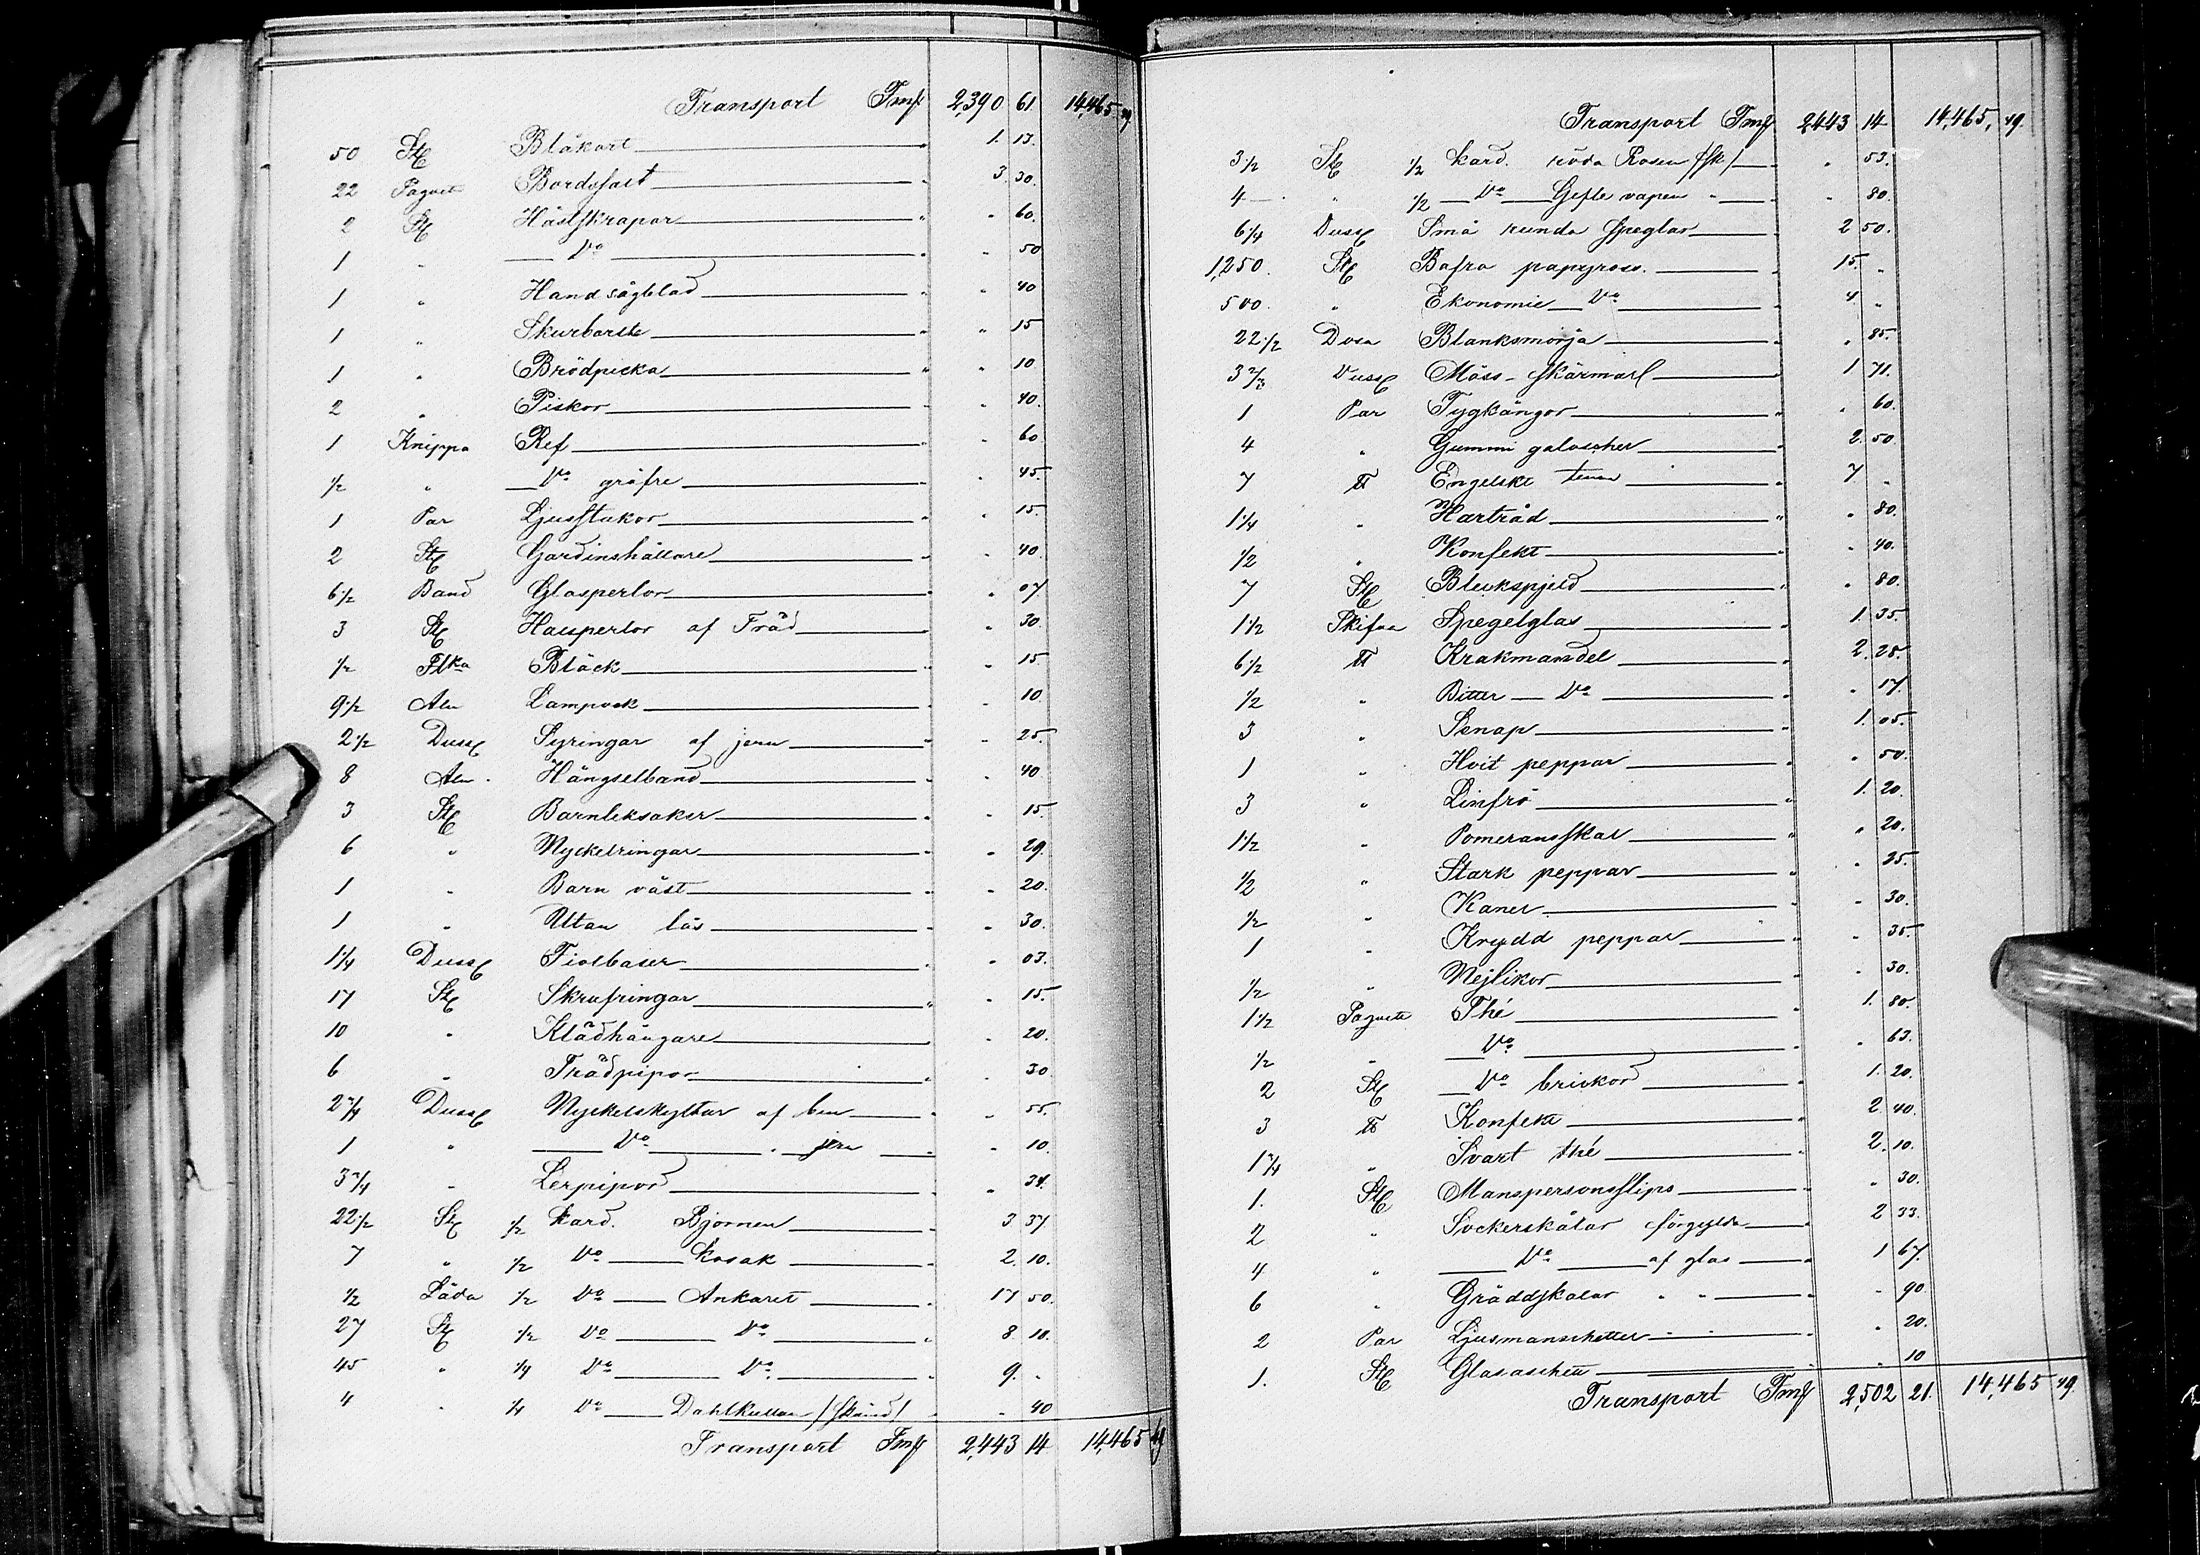 Transport Fmk 2,390 61 14,465 49
50 St. Blåkort " 1. 13.
22 Paquet Bordsfalt " 3. 30.
2 St. Hästskrapor " " 60.
1 " Do " " 50
1 " Handsågblad " " 40
1 " Skurborste " " 15
1 " Brödpicka " " 10
2 " Piskor " " 40.
1 Knippa Ref " " 60
1/2 " Do gröfre " " 45.
1 Par Ljusstakor " " 15.
2 St. Gardinshållare " " 40.
6 1/2 Band Glasperlor " " 07
3 St. af Träd " " 30.
1/2 Flka Bläck " " 15
9 1/2 Aln Lampvek " " 10.
2 1/2 Duss Syringar af jern " " 25.
8 Aln Hängselband " " 40
3 St. Barnleksaker " " 15.
6 " Nyckelringar " " 29.
1 " Barn väst " " 20.
1 " Utan lås " " 30.
1 1/4 Duss Fiolbaser " " 03.
17 St. Skrufringar " " 15.
10 " Klädhängare " " 20.
6 " Trädpipor " " 30
2 3/4 Duss Nyckelskyltar af ben " " 55.
1 " Do " jern " " 10.
3 3/4 " Lerpipor " " 34.
22 1/2 St. 1/2 kard. Björnen " 3 37
7 " 1/2 Do Kosak " 2. 10.
1/2 Låda 1/2 Do Ankaret " 17 50.
27 St. 1/2 Do Do " 8. 10.
45 " 1/4 Do Do " 9. "
4 " 1/4 Do Dahlkullan " " 40
Transport Fmk 2,443 14 14,465 49
Transport Fmk 2443 14 14,465, 49.
3 1/2 St. 1/2 kard. röda Rosen " " 53.
4 " 1/2 Do Gefle vapen " " 80.
6 1/4 Duss Små runda speglar " 2 50.
1,250. St. Bafra papyross. " 15. "
500. " Ekonomie Do " 4. "
22 1/2 Dosa Blanksmörja " " 85.
3 2/3 Duss Möss-skärmar " 1 71.
1 Par Tygkängor " " 60.
4 " Gummi galoscher " 2. 50.
7 ℔ Engelskt tenn " 7 "
1 1/4 " Hartråd " " 80.
1/2 " Konfekt " " 40.
7 St. Bleckspjeld " " 80.
1 1/2 Skifva Spegelglas " 1. 35.
6 1/2 ℔ Krakmandel " 2. 28.
1/2 " Bitter Do " " 17.
3 " Senap " 1. 05.
1 " Hvit peppar " " 50.
3 " Linfrö " 1. 20.
1 1/2 " Pomeransskal " " 20.
1/2 " Stark peppar " " 25.
1/2 " Kanel " " 30.
1 " Krydd peppar " " 35.
1/2 " Nejlikor " " 30.
1 1/2 Paquett Thé " 1. 80.
1/2 " Do " " 63.
2 St. Do brickor " 1. 20.
3 ℔ Konfekt " 2 40.
1 3/4 " Svart thé " 2. 10.
1. St. Manspersonsslips " " 30.
2 " Sockerskålar förgylda " 2 33.
4 " Do af glas " 1 67.
6 " Gräddskålar " " " " 90
2 Par Ljusmanschetter " " " " 20.
1. St. Glasaschett " " 10
Transport Fmk 2,502 21. 14,465 49.